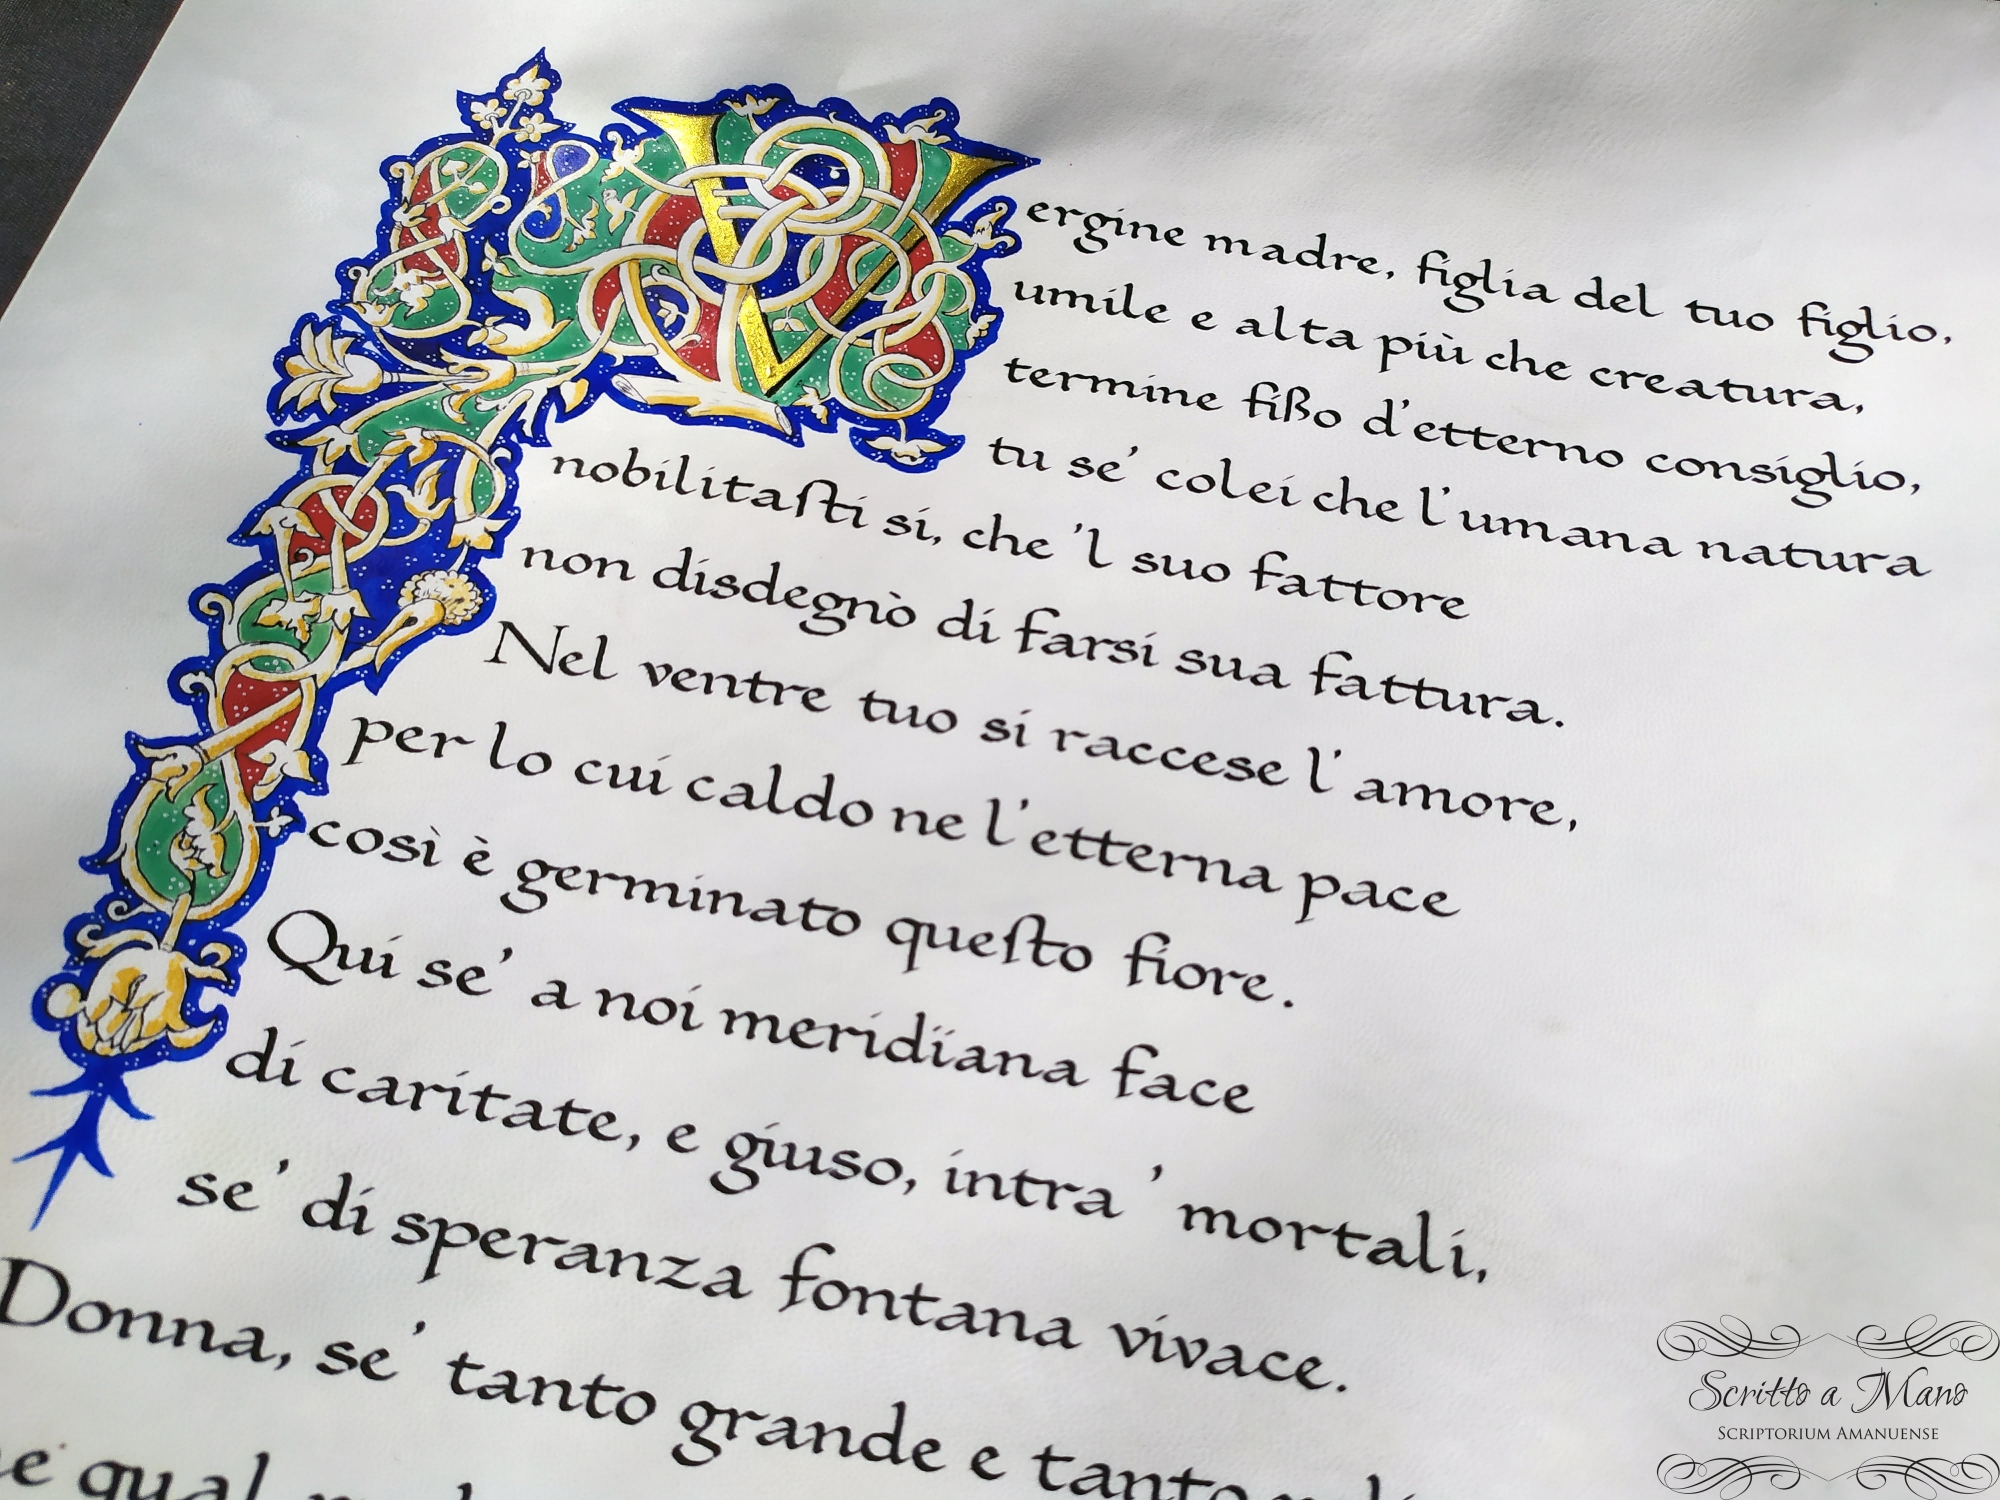 Vergine madre, figlia del tuo figlio,
umile e alta più che creatura,
termine fißo d'etterno consiglio,
tu se' colei che l'umana natura
nobilitaſti sì, che 'l suo fattore
non disdegnò di farsi sua fattura.
Nel ventre tuo si raccese l'amore,
per lo cui caldo ne l'etterna pace
così è germinato queſto fiore.
Qui se' a noi meridïana face
di caritate, e giuso, intra ' mortali,
se' di speranza fontana vivace.
Donna, se' tanto grande e tanto
qual
Scritto a Mano
SCRIPTORIUM AMANUENSE